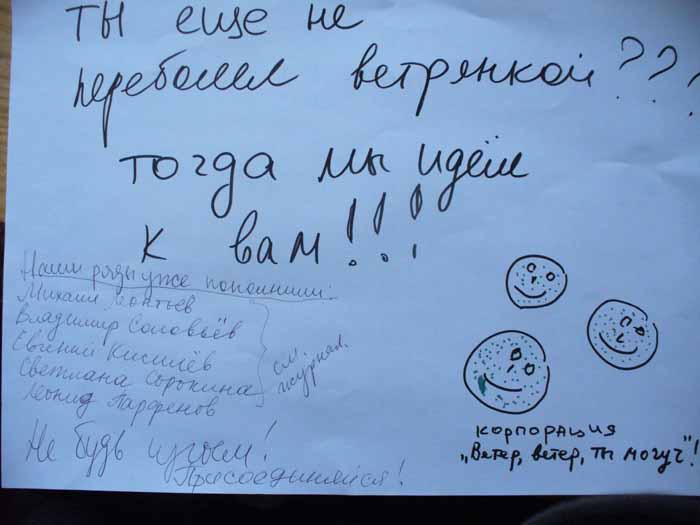 ты еще не
переболел ветрянкой???
тогда мы идём
к вам!!!
Наши ряды уже пополнили:
Михаил Леонтьев
Владимир Соловьёв
Евгений Киселёв
Светлана Сорокина
Леонид Парфенов
см. журнал.
Не будь изгоем!
Присоединяйся!
корпорация
„Ветер, ветер, ты могуч"!